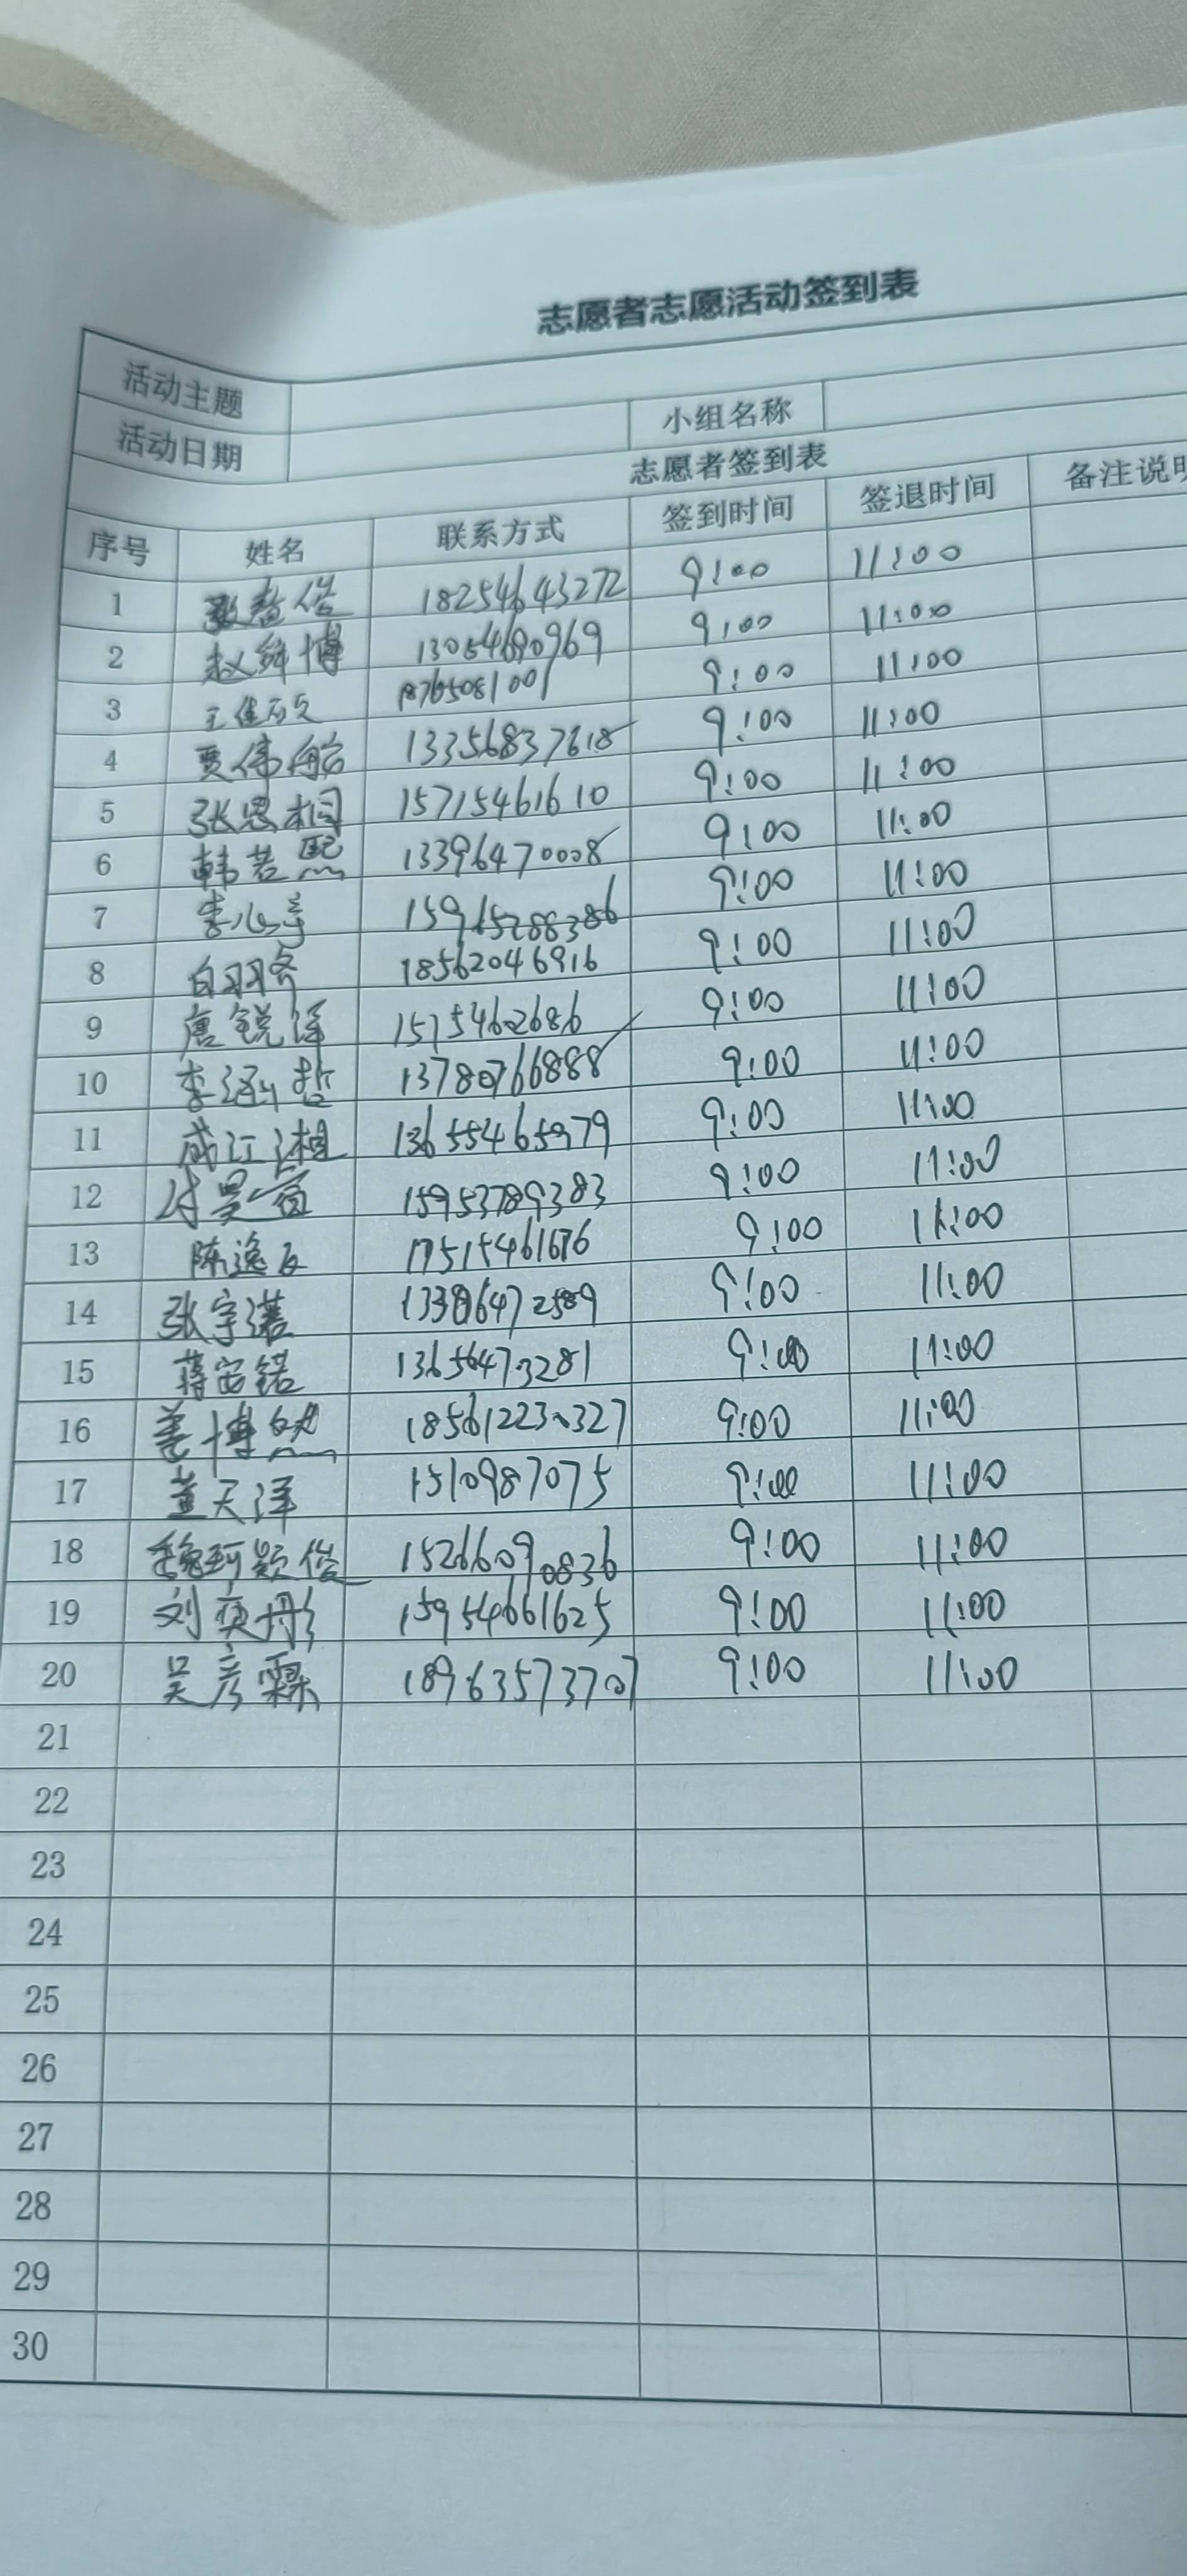 志愿者志愿活动签到表
活动主题
活动日期 小组名称
志愿者签到表
序号 姓名 联系方式 签到时间 签退时间 备注说明
1 18254643272 9:00 11:00
2 赵舜博 13054690969 9:00 11:00
3 18765081001 9:00 11:00
4 贾伟船 13356837618 9:00 11:00
5 张思桐 15715461610 9:00 11:00
6 韩若熙 13396470008 9:00 11:00
7 李心 15965288386 9:00 11:00
8 白羽齐 18562046916 9:00 11:00
9 唐锐泽 9:00 11:00
10 李涵哲 13780766888 9:00 11:00
11 成江湘 9:00 11:00
12 付昊 15953789383 9:00 11:00
13 陈逸 17515461676 9:00 11:00
14 张宇诺 9:00 11:00
15 蒋 13656473281 9:00 11:00
16 姜博然 9:00 11:00
17 董天泽 1510987075 9:00 11:00
18 魏珂颢俊 15266090836 9:00 11:00
19 刘奕彤 15954661625 9:00 11:00
20 吴彦霖 18963573707 9:00 11:00
21
22
23
24
25
26
27
28
29
30